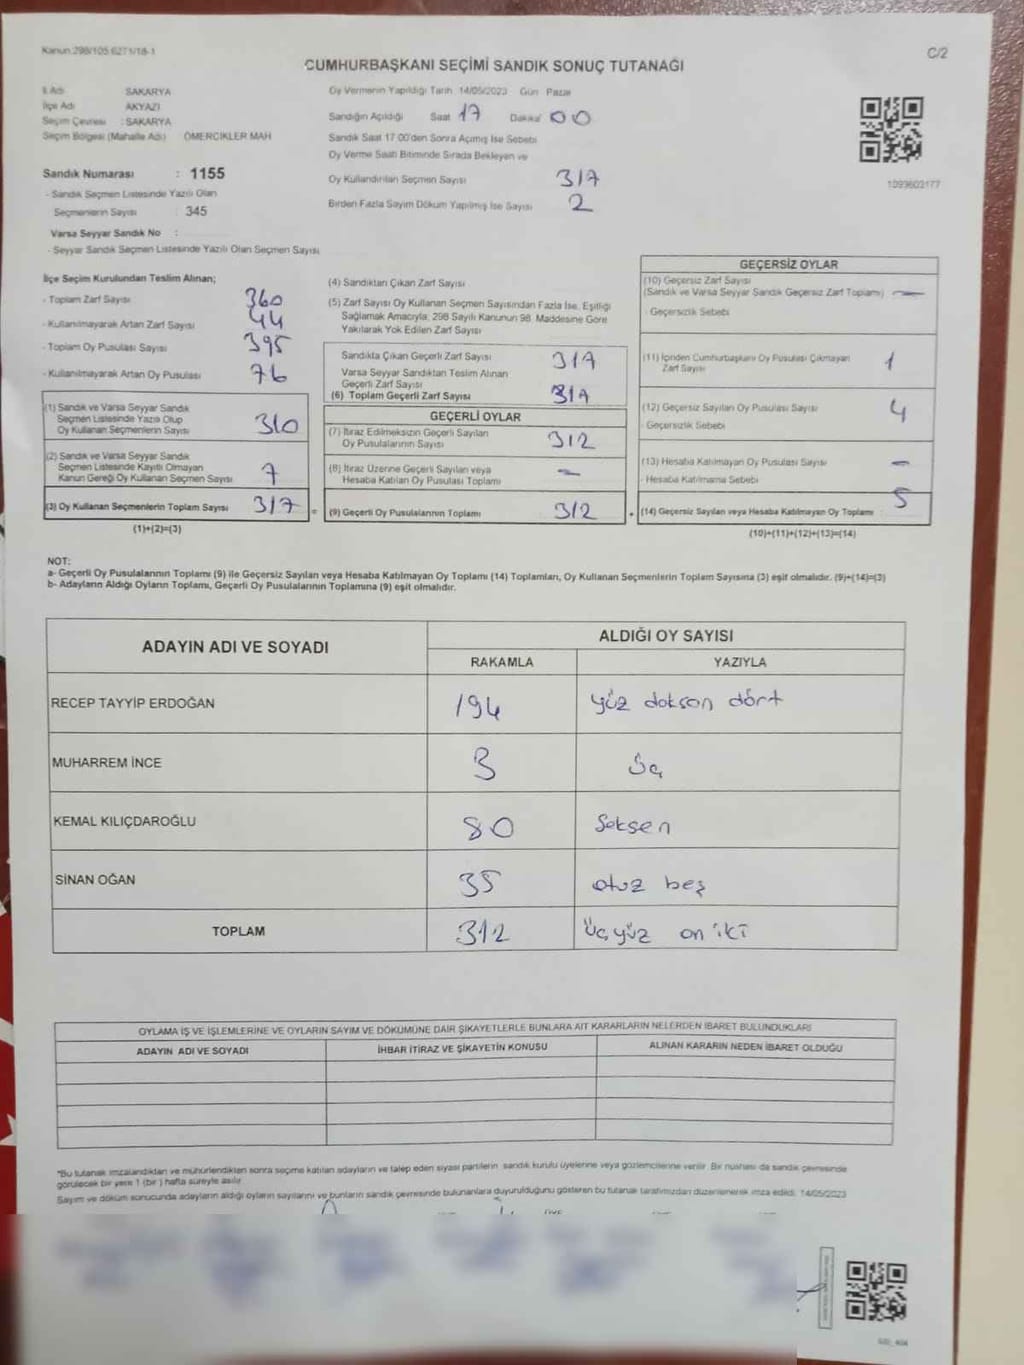 Kanun:298/105 6271/18-1
C/2
CUMHURBAŞKANI SEÇİMİ SANDIK SONUÇ TUTANAĞI
İl Adı SAKARYA
İlçe Adı AKYAZI
Seçim Çevresi : SAKARYA
Seçim Bölgesi (Mahalle Adı) ÖMERCİKLER MAH
Sandık Numarası : 1155
- Sandık Seçmen Listesinde Yazılı Olan
Seçmenlerin Sayısı : 345
Varsa Seyyar Sandık No :
- Seyyar Sandık Seçmen Listesinde Yazılı Olan Seçmen Sayısı
Oy Vermenin Yapıldığı Tarih 14/05/2023 Gün Pazar
Sandığın Açıldığı Saat 17 Dakika 00
Sandık Saat 17:00'den Sonra Açılmış İse Sebebi
Oy Verme Saati Bitiminde Sırada Bekleyen ve
Oy Kullandırılan Seçmen Sayısı 317
Birden Fazla Sayım Döküm Yapılmış İse Sayısı 2
1099603177
İlçe Seçim Kurulundan Teslim Alınan;
- Toplam Zarf Sayısı 360
- Kullanılmayarak Artan Zarf Sayısı 44
- Toplam Oy Pusulası Sayısı 395
- Kullanılmayarak Artan Oy Pusulası 76
(1) Sandık ve Varsa Seyyar Sandık
Seçmen Listesinde Yazılı Olup
Oy Kullanan Seçmenlerin Sayısı 310
(2) Sandık ve Varsa Seyyar Sandık
Seçmen Listesinde Kayıtlı Olmayan
Kanun Gereği Oy Kullanan Seçmen Sayısı 7
(3) Oy Kullanan Seçmenlerin Toplam Sayısı 317
(1)+(2)=(3)
(4) Sandıktan Çıkan Zarf Sayısı
(5) Zarf Sayısı Oy Kullanan Seçmen Sayısından Fazla İse, Eşitliği
Sağlamak Amacıyla, 298 Sayılı Kanunun 98. Maddesine Göre
Yakılarak Yok Edilen Zarf Sayısı
Sandıkta Çıkan Geçerli Zarf Sayısı 317
Varsa Seyyar Sandıktan Teslim Alınan
Geçerli Zarf Sayısı
(6) Toplam Geçerli Zarf Sayısı 317
GEÇERLİ OYLAR
(7) İtiraz Edilmeksizin Geçerli Sayılan
Oy Pusulalarının Sayısı 312
(8) İtiraz Üzerine Geçerli Sayılan veya
Hesaba Katılan Oy Pusulası Toplamı -
= (9) Geçerli Oy Pusulalarının Toplamı 312
GEÇERSİZ OYLAR
(10) Geçersiz Zarf Sayısı
(Sandık ve Varsa Seyyar Sandık Geçersiz Zarf Toplamı) -
- Geçersizlik Sebebi
(11) İçinden Cumhurbaşkanı Oy Pusulası Çıkmayan
Zarf Sayısı 1
(12) Geçersiz Sayılan Oy Pusulası Sayısı 4
- Geçersizlik Sebebi
(13) Hesaba Katılmayan Oy Pusulası Sayısı -
- Hesaba Katılmama Sebebi
+ (14) Geçersiz Sayılan veya Hesaba Katılmayan Oy Toplamı 5
(10)+(11)+(12)+(13)=(14)
NOT:
a- Geçerli Oy Pusulalarının Toplamı (9) ile Geçersiz Sayılan veya Hesaba Katılmayan Oy Toplamı (14) Toplamları, Oy Kullanan Seçmenlerin Toplam Sayısına (3) eşit olmalıdır. (9)+(14)=(3)
b- Adayların Aldığı Oyların Toplamı, Geçerli Oy Pusulalarının Toplamına (9) eşit olmalıdır.
ADAYIN ADI VE SOYADI ALDIĞI OY SAYISI
RAKAMLA YAZIYLA
RECEP TAYYİP ERDOĞAN 194 yüz doksan dört
MUHARREM İNCE 3 üç
KEMAL KILIÇDAROĞLU 80 Seksen
SİNAN OĞAN 35 otuz beş
TOPLAM 312 üçyüz on iki
OYLAMA İŞ VE İŞLEMLERİNE VE OYLARIN SAYIM VE DÖKÜMÜNE DAİR ŞİKAYETLERLE BUNLARA AİT KARARLARIN NELERDEN İBARET BULUNDUKLARI
ADAYIN ADI VE SOYADI İHBAR İTİRAZ VE ŞİKAYETİN KONUSU ALINAN KARARIN NEDEN İBARET OLDUĞU
*Bu tutanak imzalandıktan ve mühürlendikten sonra seçime katılan adayların ve talep eden siyasi partilerin sandık kurulu üyelerine veya gözlemcilerine verilir. Bir nüshası da sandık çevresinde
görülecek bir yere 1 (bir) hafta süreyle asılır.
Sayım ve döküm sonucunda adayların aldığı oyların sayılarını ve bunların sandık çevresinde bulunanlara duyurulduğunu gösteren bu tutanak tarafımızdan düzenlenerek imza edildi. 14/05/2023